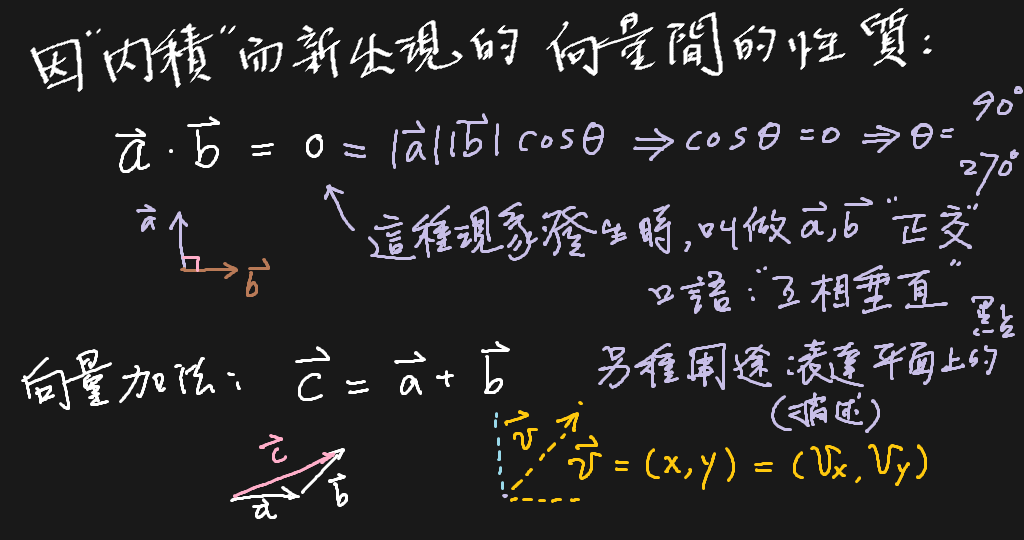 因"内積"而新出現的 向量間的性質:
a⃗ · b⃗ = 0 = |a⃗||b⃗| cosθ ⇒ cosθ = 0 ⇒ θ = 90° 270°
這種現象發生時,叫做 a⃗,b⃗ "正交"
a⃗
b⃗
口語:"互相垂直"
向量加法: c⃗ = a⃗ + b⃗
另種用途:表達平面上的點
(描述)
c⃗
a⃗
b⃗
v⃗
v⃗ = (x,y) = (Vx, Vy)